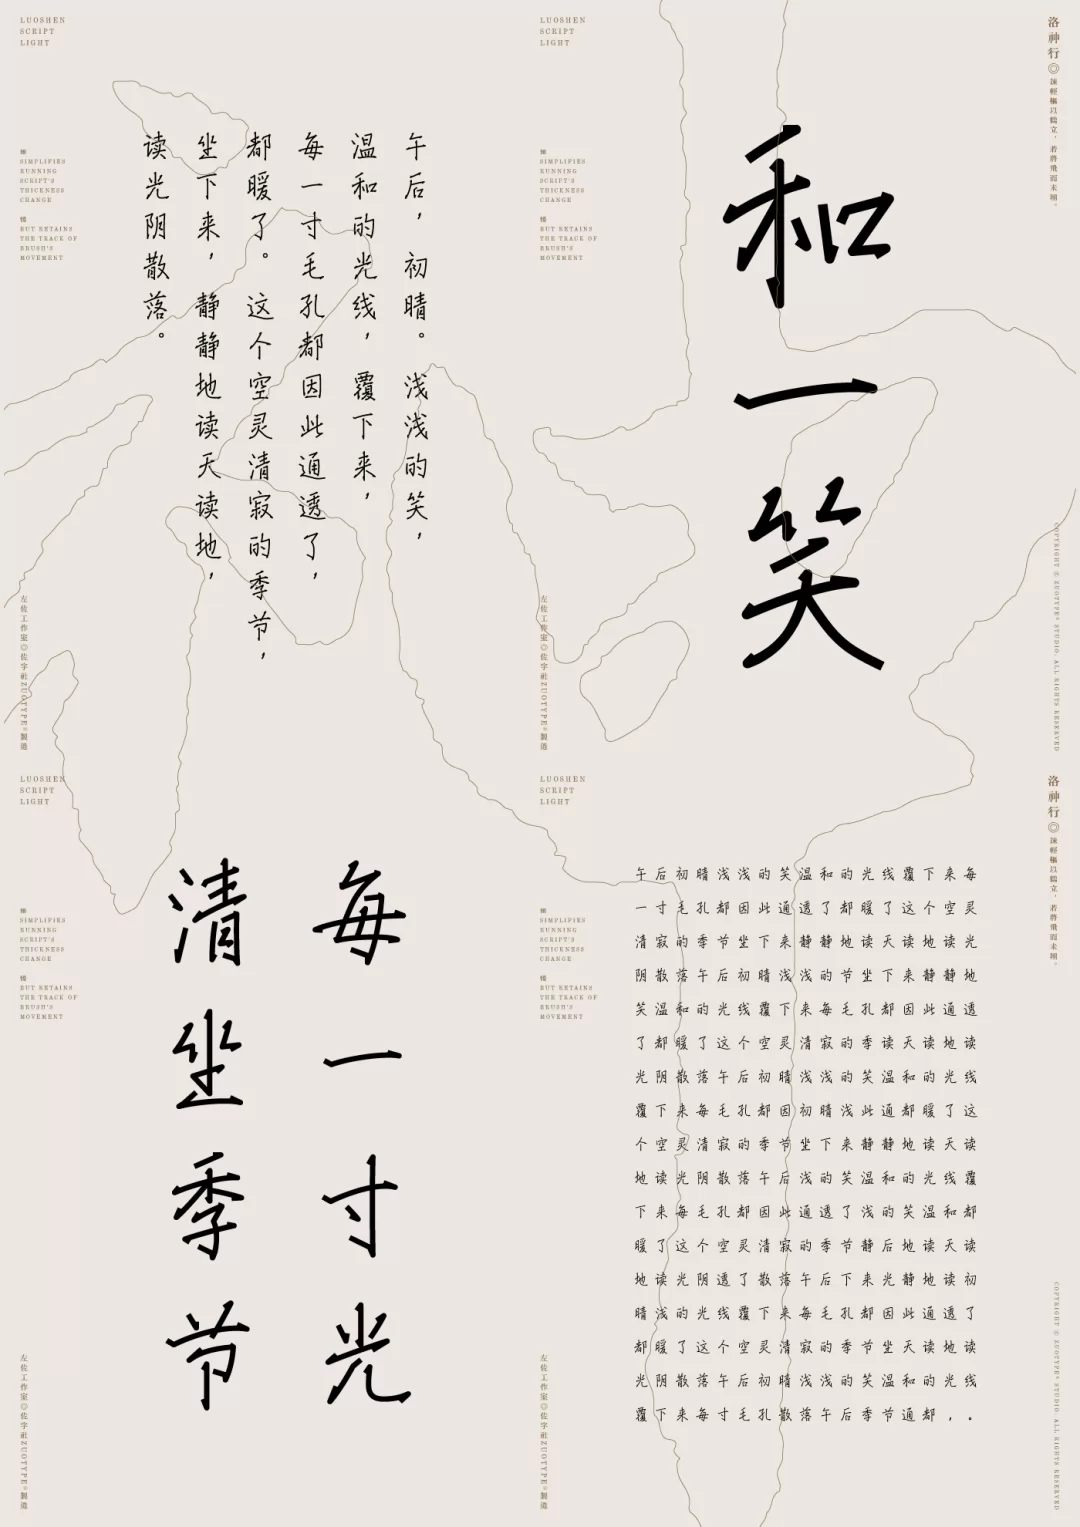 LUOSHEN
SCRIPT
LIGHT
SIMPLIFIES
RUNNING
SCRIPT'S
THICKNESS
CHANGE
BUT RETAINS
THE TRACK OF
BRUSH'S
MOVEMENT
午后，初晴。浅浅的笑，
温和的光线，覆下来，
每一寸毛孔都因此通透了，
都暖了。这个空灵清寂的季节，
坐下来，静静地读天读地，
读光阴散落。
左佐工作室◎佐字社ZUOTYPE®製造
LUOSHEN
SCRIPT
LIGHT
SIMPLIFIES
RUNNING
SCRIPT'S
THICKNESS
CHANGE
BUT RETAINS
THE TRACK OF
BRUSH'S
MOVEMENT
和一笑
洛神行◎竦輕軀以鶴立，若將飛而未翔。
左佐工作室◎佐字社ZUOTYPE®製造
COPYRIGHT © ZUOTYPE® STUDIO. ALL RIGHTS RESERVED
LUOSHEN
SCRIPT
LIGHT
SIMPLIFIES
RUNNING
SCRIPT'S
THICKNESS
CHANGE
BUT RETAINS
THE TRACK OF
BRUSH'S
MOVEMENT
每一寸光
清坐季节
左佐工作室◎佐字社ZUOTYPE®製造
LUOSHEN
SCRIPT
LIGHT
SIMPLIFIES
RUNNING
SCRIPT'S
THICKNESS
CHANGE
BUT RETAINS
THE TRACK OF
BRUSH'S
MOVEMENT
洛神行◎竦輕軀以鶴立，若將飛而未翔。
午后初晴浅浅的笑温和的光线覆下来每
一寸毛孔都因此通透了都暖了这个空灵
清寂的季节坐下来静静地读天读地读光
阴散落午后初晴浅浅的节坐下来静静地
笑温和的光线覆下来每毛孔都因此通透
了都暖了这个空灵清寂的季读天读地读
光阴散落午后初晴浅浅的笑温和的光线
覆下来每毛孔都因初晴浅此通都暖了这
个空灵清寂的季节坐下来静静地读天读
地读光阴散落午后浅的笑温和的光线覆
下来每毛孔都因此通透了浅的笑温和都
暖了这个空灵清寂的季节静后地读天读
地读光阴透了散落午后下来光静地读初
晴浅的光线覆下来每毛孔都因此通透了
都暖了这个空灵清寂的季节坐天读地读
光阴散落午后初晴浅浅的笑温和的光线
覆下来每寸毛孔散落午后季节通都，。
左佐工作室◎佐字社ZUOTYPE®製造
COPYRIGHT © ZUOTYPE® STUDIO. ALL RIGHTS RESERVED